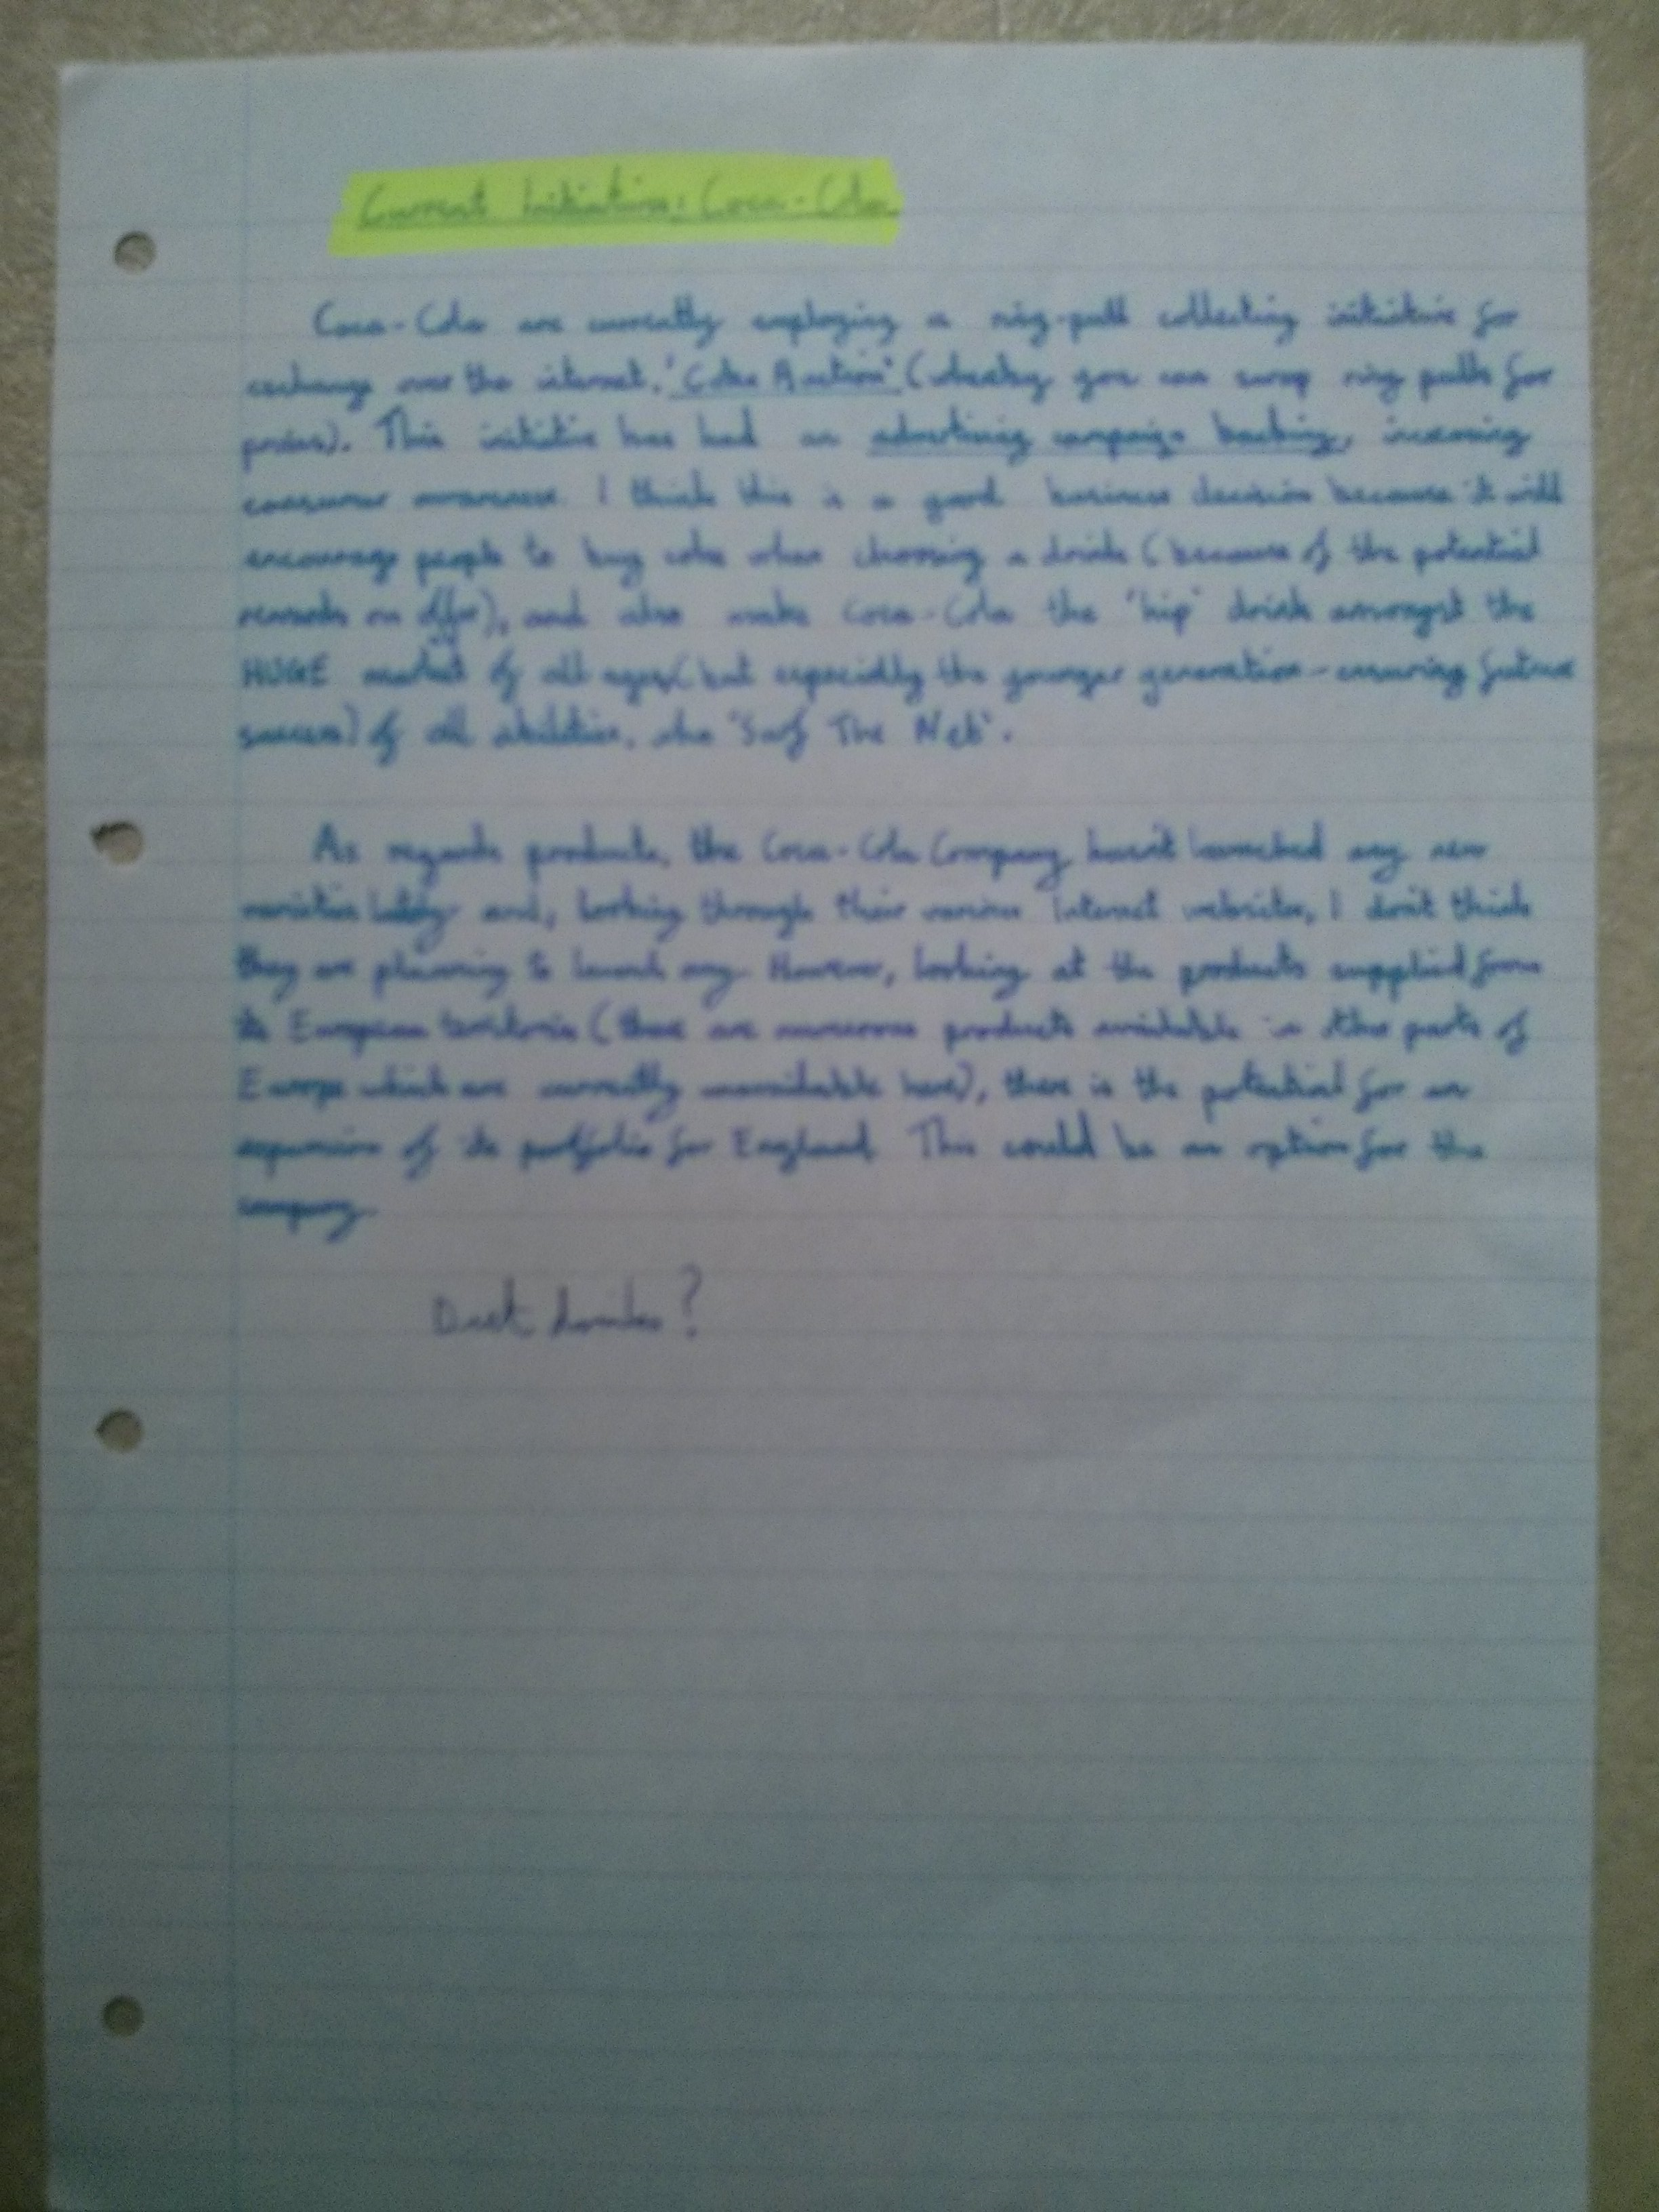 Current Initiatives: Coca-Cola
Coca-Cola are currently employing a ring-pull collecting initiative for
exchange over the internet, 'Coke Auction' (whereby you can swap ring pulls for
prizes). This initiative has had an advertising campaign backing, increasing
consumer awareness. I think this is a good business decision because it will
encourage people to buy coke when choosing a drink (because of the potential
rewards on offer), and also make Coca-Cola the 'hip' drink amongst the
HUGE market of all ages (but especially the younger generation - ensuring future
success) of all abilities, who 'Surf The Net'.
As regards products, the Coca-Cola Company haven't launched any new
varieties lately and, looking through their various Internet websites, I don't think
they are planning to launch any. However, looking at the products supplied from
its European territories (there are numerous products available in other parts of
Europe which are currently unavailable here), there is the potential for an
expansion of its portfolio for England. This could be an option for the
company.
Diet drinks?